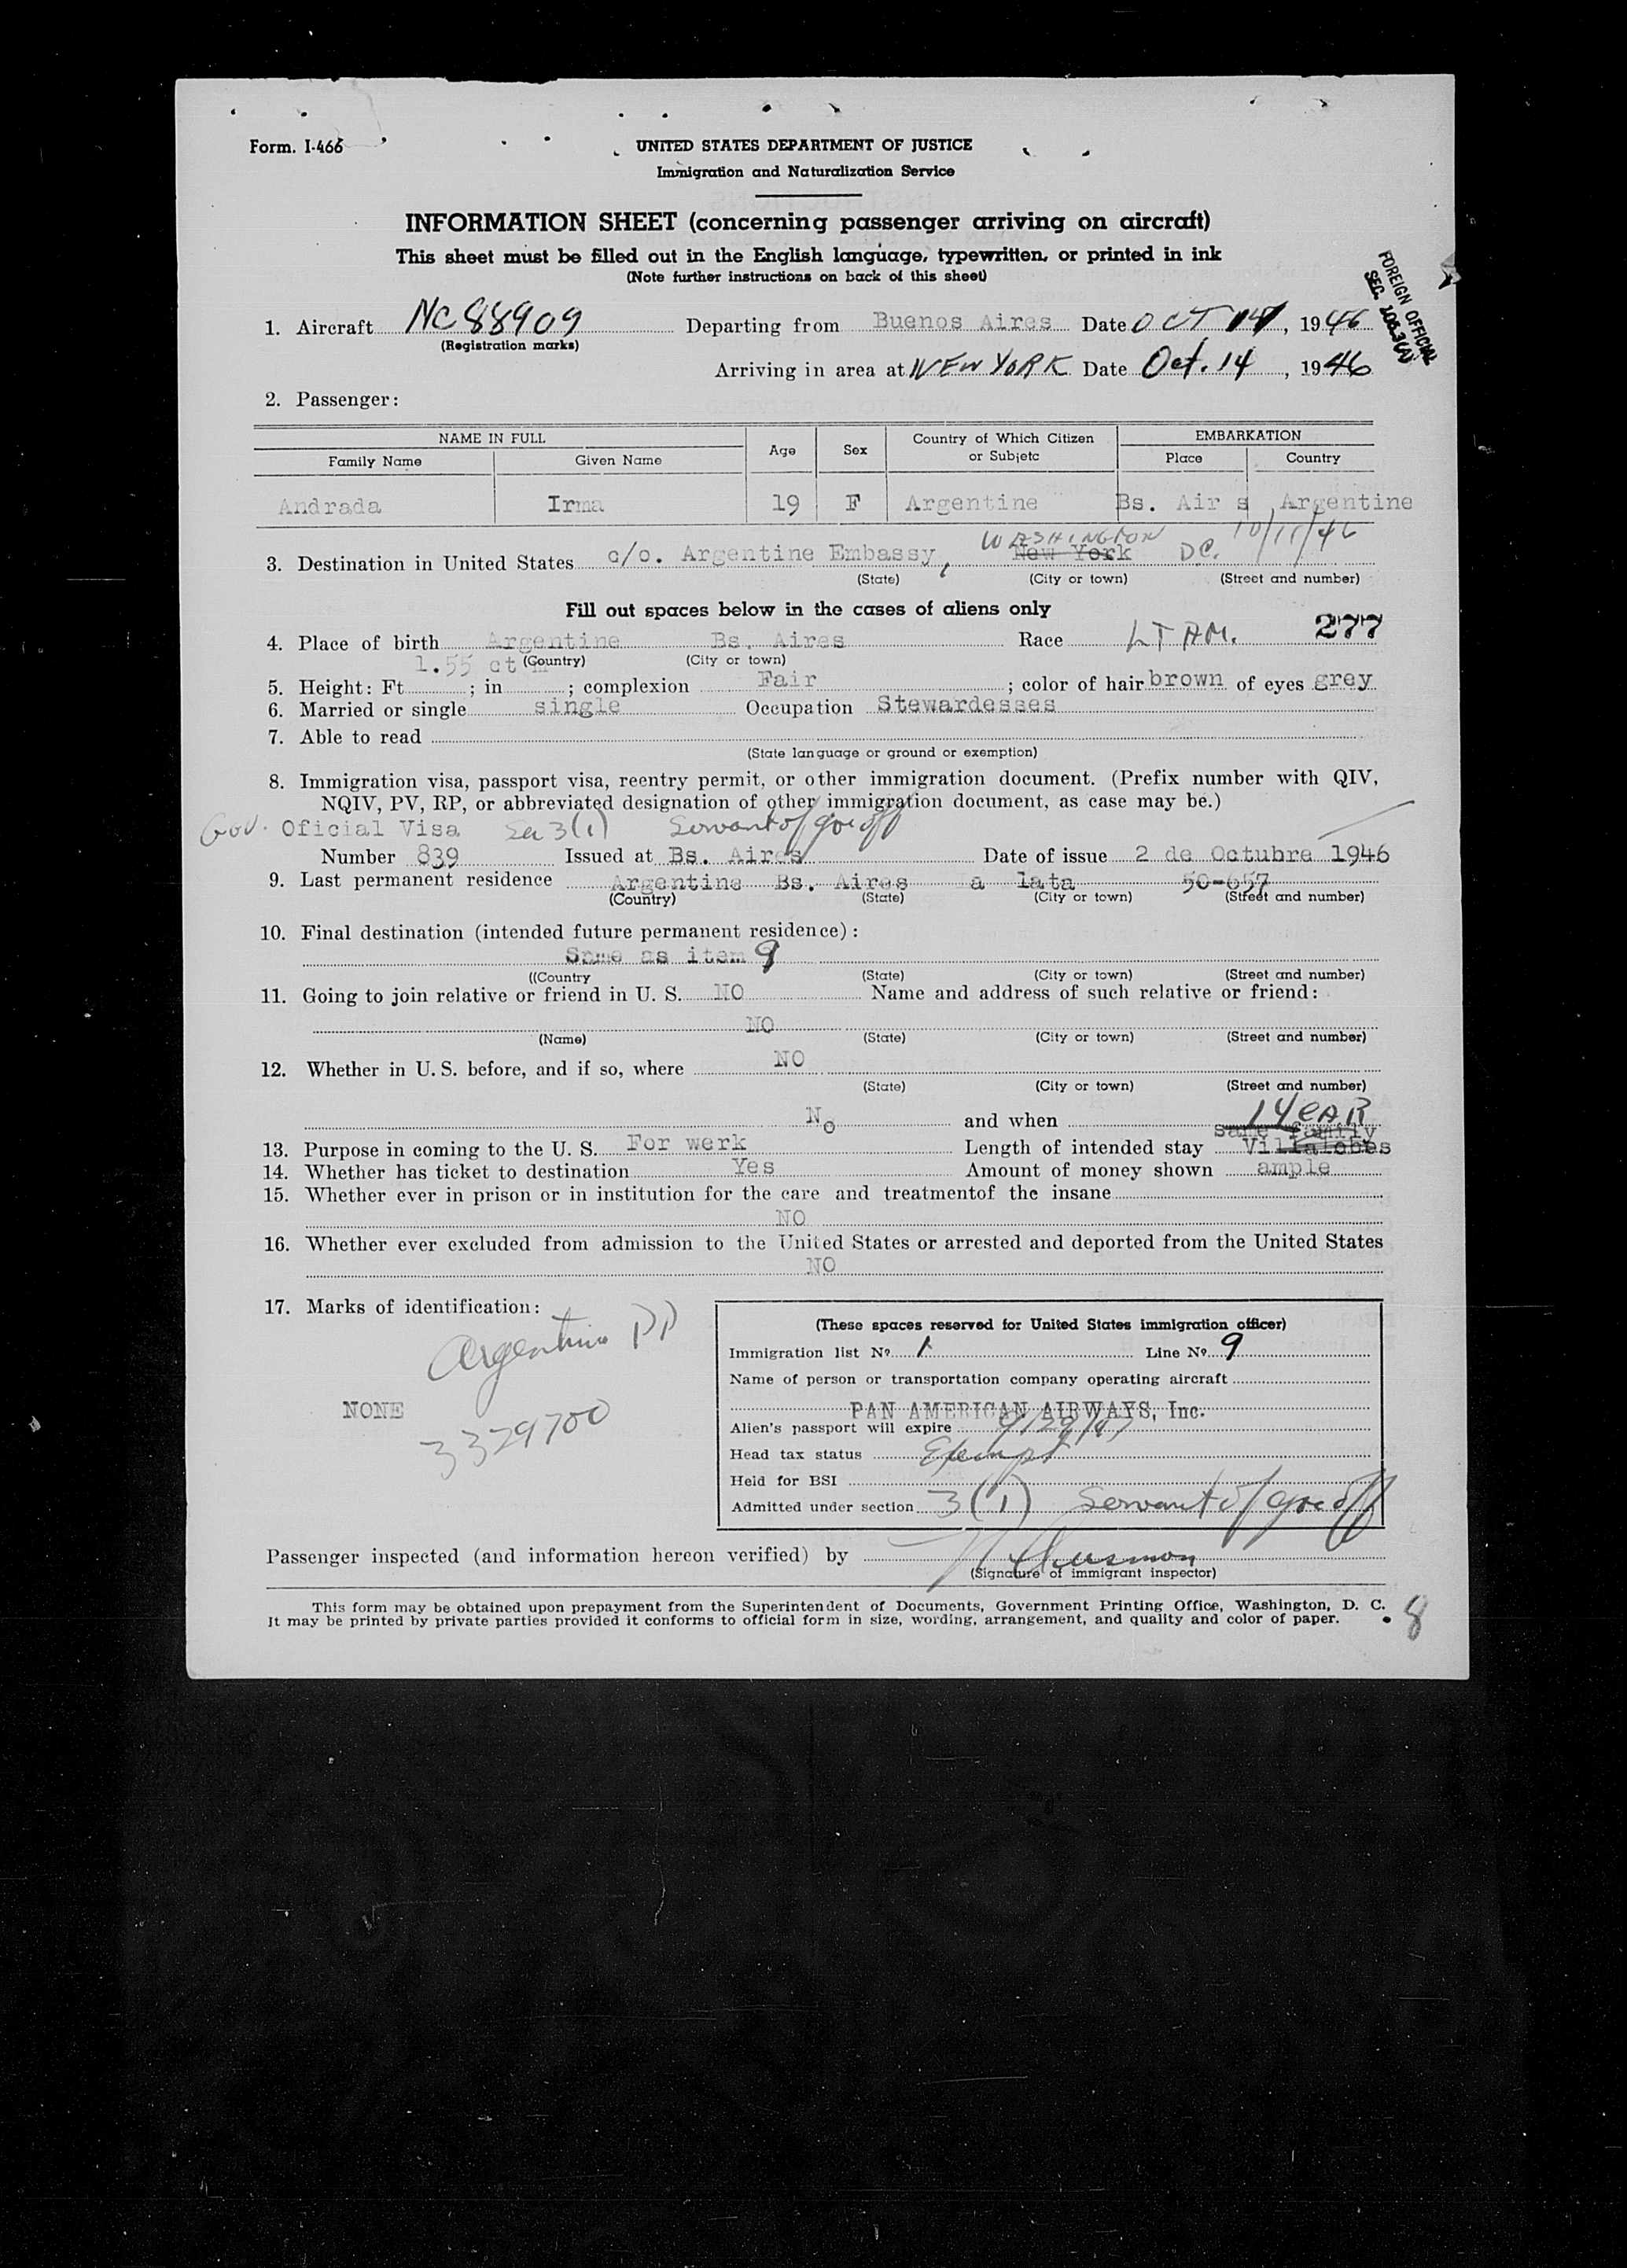 Form. I-466
UNITED STATES DEPARTMENT OF JUSTICE
Immigration and Naturalization Service
INFORMATION SHEET (concerning passenger arriving on aircraft)
This sheet must be filled out in the English language, typewritten, or printed in ink
(Note further instructions on back of this sheet)
FOREIGN OFFICIAL
SEC. 106.3(A)
1. Aircraft NC88909 Departing from Buenos Aires Date OCT 14, 1946
(Registration marks)
Arriving in area at NEW YORK Date Oct. 14, 1946
2. Passenger:
NAME IN FULL Age Sex Country of Which Citizen or Subjetc EMBARKATION
Family Name Given Name Place Country
Andrada Irma 19 F Argentine Bs. Air s Argentine
WASHINGTON DC. 10/11/46
3. Destination in United States c/o. Argentine Embassy, New York
(State) (City or town) (Street and number)
Fill out spaces below in the cases of aliens only
277
4. Place of birth Argentine Bs. Aires Race LT AM.
(Country) (City or town)
1.55 ct m
5. Height: Ft ; in ; complexion Fair ; color of hair brown of eyes grey
6. Married or single single Occupation Stewardesses
7. Able to read
(State language or ground or exemption)
8. Immigration visa, passport visa, reentry permit, or other immigration document. (Prefix number with QIV,
NQIV, PV, RP, or abbreviated designation of other immigration document, as case may be.)
Gov. Oficial Visa Sec 3(1) Servant of gov off
Number 839 Issued at Bs. Aires Date of issue 2 de Octubre 1946
9. Last permanent residence Argentine Bs. Aires a lata 50-657
(Country) (State) (City or town) (Street and number)
10. Final destination (intended future permanent residence):
Same as item 9
((Country (State) (City or town) (Street and number)
11. Going to join relative or friend in U. S. NO Name and address of such relative or friend:
NO
(Name) (State) (City or town) (Street and number)
12. Whether in U. S. before, and if so, where NO
(State) (City or town) (Street and number)
No and when
1 YEAR
same family
13. Purpose in coming to the U. S. For werk Length of intended stay Villalobes
14. Whether has ticket to destination Yes Amount of money shown ample
15. Whether ever in prison or in institution for the care and treatmentof the insane
NO
16. Whether ever excluded from admission to the United States or arrested and deported from the United States
NO
17. Marks of identification:
Argentine PP
NONE
3329700
(These spaces reserved for United States immigration officer)
Immigration list Nº 1 Line Nº 9
Name of person or transportation company operating aircraft
PAN AMERICAN AIRWAYS, Inc.
Alien's passport will expire 9/29/47
Head tax status Exempt
Held for BSI
Admitted under section 3(1) Servant of gov off
Passenger inspected (and information hereon verified) by
(Signature of immigrant inspector)
This form may be obtained upon prepayment from the Superintendent of Documents, Government Printing Office, Washington, D. C.
It may be printed by private parties provided it conforms to official form in size, wording, arrangement, and quality and color of paper.
8